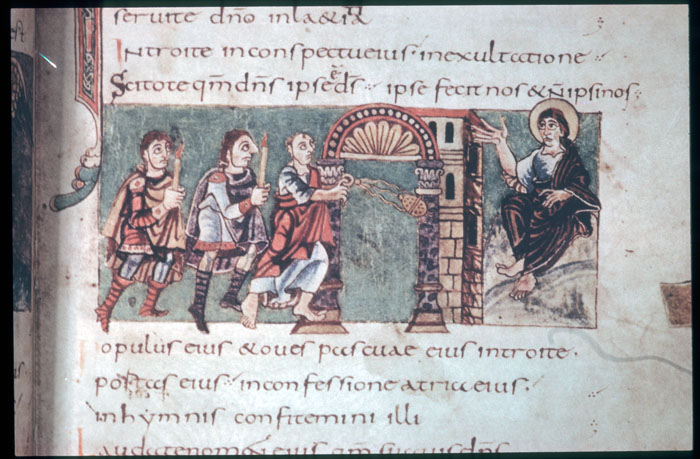 seruite dno in laetitia
Introite in conspectu eius · in exultatione
Scitote qm dns ipse e ds · ipse fecit nos & n ipsi nos ·
opulus eius & oues pascuae eius introite ·
portas eius · in confessione atria eius ·
in hymnis confitemini illi
laudate nomen eius qm suauis dns